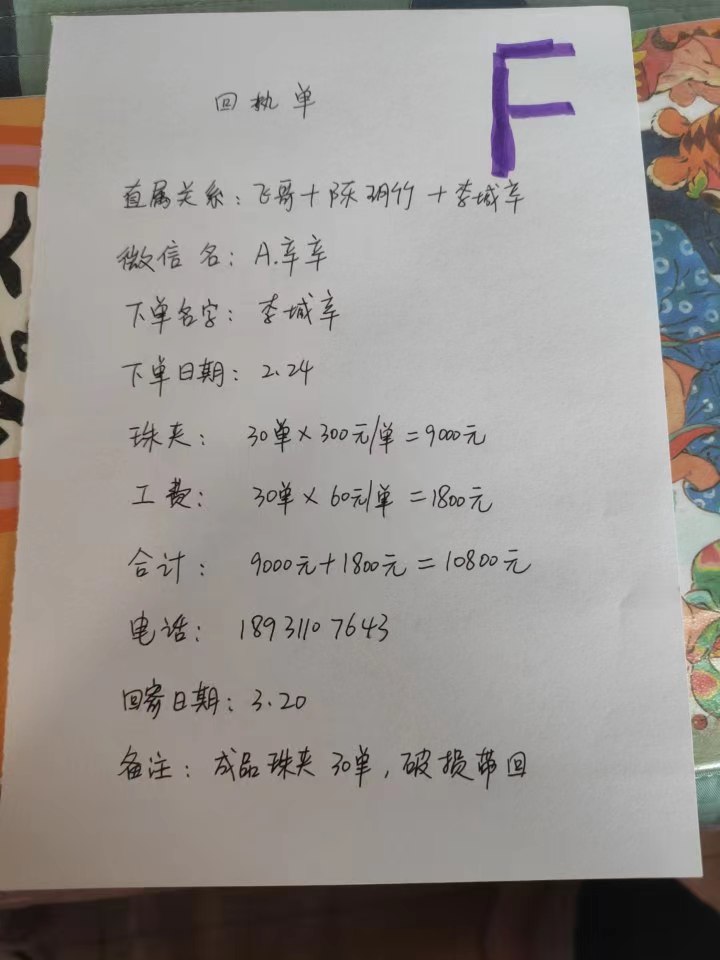 F
回执单
直属关系：飞哥+陈玥竹+李城辛
微信名：A.辛辛
下单名字：李城辛
下单日期：2.24
珠夹：30单×300元/单=9000元
工费：30单×60元/单=1800元
合计：9000元+1800元=10800元
电话：18931107643
回寄日期：3.20
备注：成品珠夹30单，破损带回